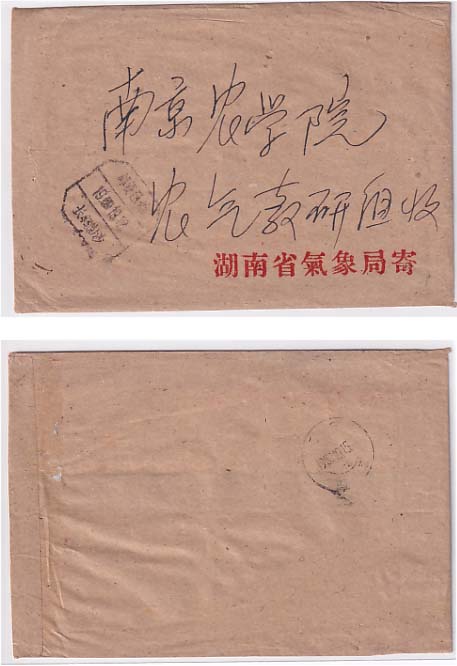 南京农学院
农气教研组收
湖南省氣象局寄